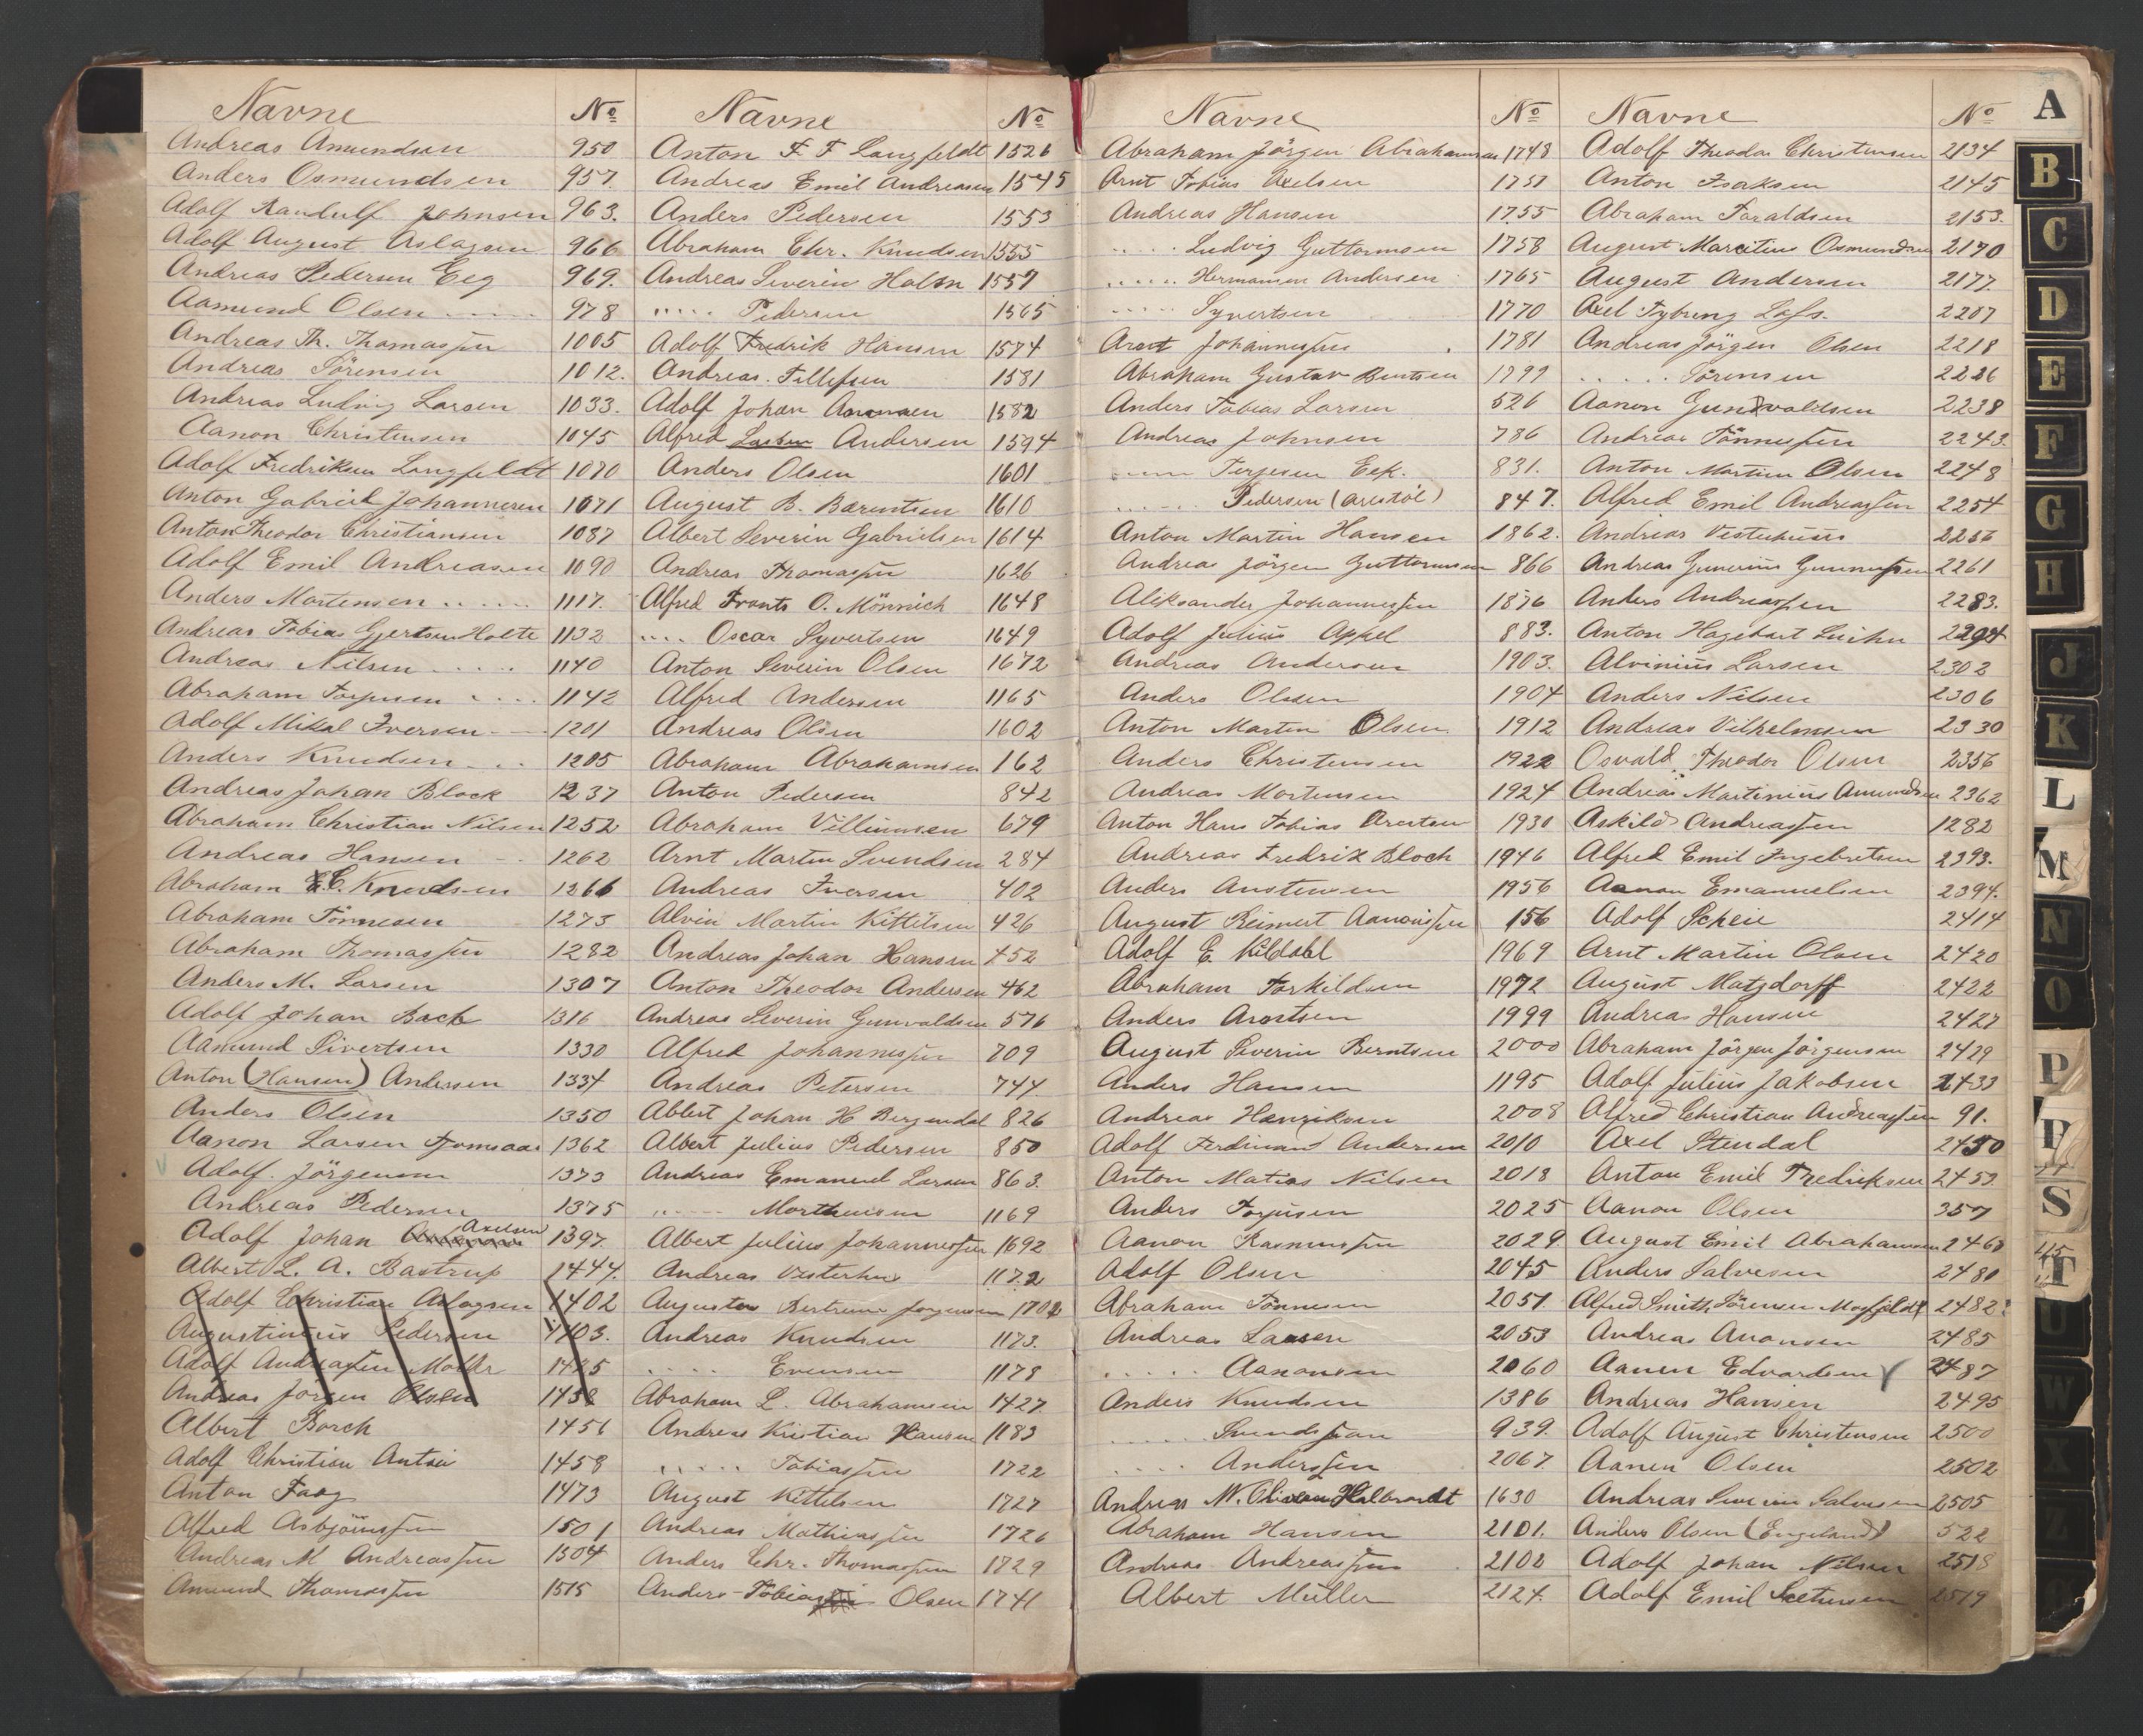 Navne No
Andreas Amundsen 950
Anders Osmundsen 957
Adolf Randulf Johnsen 963.
Adolf August Aslagsen 966
Andreas Pedersen Eeg 969.
Aamund Olsen 978
Andreas Th. Thomassen 1005
Andreas Sörensen 1012.
Andreas Ludvig Larsen 1033.
Aanon Christensen 1045
Adolf Fredriksen Langfeldt 1070
Anton Gabriel Johannesen 1071
Anton Theodor Christiansen 1087
Adolf Emil Andreasen 1090
Anders Mortensen 1117.
Andreas Tobias Gjertsen Holte 1132
Andreas Nilsen 1140
Abraham Torjusen 1142
Adolf Mikal Iversen 1201
Anders Knudsen 1205
Andreas Johan Block 1237
Abraham Christian Nilsen 1252
Andreas Hansen 1262
Abraham C. Knudsen 1266
Abraham Tönnesen 1273
Abraham Thomassen 1282
Anders M. Larsen 1307
Adolf Johan Bach 1316
Aamund Sivertsen 1330
Anton (Hansen) Andersen 1334
Anders Olsen 1350
Aanon Larsen 1362
Adolf. Jörgensen 1373
Andreas Pedersen 1375
Adolf Johan Axelsen 1397
Albert L. A. Bastrup 1444.
Adolf Christian Aslagsen 1402
Augustinius Pedersen 1403.
Adolf Andreassen Moller 1425
Andreas Jörgen Olsen 1438
Albert Borch 1456
Adolf Christian Anton 1458
Anton Faag 1473
Alfred Asbjörnssen 1501
Andreas M Andreassen 1504
Amund Thomassen 1515
Navne No
Anton F. F Langfeldt 1526
Andreas Emil Andreasen 1545
Anders Pedersen 1553
Abraham Chr. Knudsen 1555
Andreas Severin Holm 1557
" Pedersen 1565
Adolf Fredrik Hansen 1574
Andreas. Tellefsen 1581
Adolf Johan 1582
Alfred Larsen Andersen 1594
Anders Olsen 1601
August B. Barentsen 1610
Albert Severin Gabrielsen 1614
Andreas Thomassen 1626
Alfred Frants O. Mönnich 1648
" Oscar Syvertsen 1649
Anton Severin Olsen 1672
Alfred Andersen 1165
Andreas Olsen 1602
Abraham Abrahamsen 162
Anton Pedersen 842
Abraham Villumsen 679
Arnt Martin Svendsen 284
Andreas Iversen 402
Alvin Martin Kittelsen 426
Andreas Johan Hansen 452
Anton Theodor Andersen 462
Andreas Severin Gunvaldsen 576
Alfred Johannessen 709
Andreas Petersen 744.
Albert Johan H Bergendal 826
Albert Julius Pedersen 850
Andreas Emanuel Larsen 863.
" Morthensen 1169
Albert Julius Johannessen 1692
Andreas Vesterhus 1172
Augustus Bertrum Jorgensen 1702
Andreas Knudsen 1173.
" Evensen 1178
Abraham L. Abrahamsen 1427
Andreas Kristian Hansen 1183
" Tobiassen 1722
August Kittelsen 1727
Andreas Mathiassen 1726
Anders Chr. Thomassen 1729
Anders Tobias Olsen 1741
Navne No
Abraham Jörgen Abrahamsen 1748
Arnt Tobias Axelsen 1751
Andreas Hansen 1755
" Ludvig Guttormsen 1758
" Hermansen Andersen 1765
" Syvertsen 1770
Arent Johannessen 1781
Abraham Gustav Berntsen 1799
Anders Tobias Larsen 526
Andreas Johnsen 786
" Terjesen Eek. 831.
" Pedersen (Arestöl) 847.
Anton Martin Hansen 1862.
Andreas Jörgen Guttormsen 866
Aliksander Johannessen 1876
Adolf Julius Appel 883.
Andreas Andersen 1903.
Anders Olsen 1904
Anton Martin Olsen. 1912
Anders Christensen 1922
Andreas Mortensen 1924
Anton Hans Tobias Arentsen 1930
Andreas Fredrik Bloch 1946
Anders Anstensen 1956
August Reimert Aanonssen 156
Adolf E. Kildahl 1969
Abraham Torkildsen 1972
Anders Arntsen 1999
August Severin Berntsen 2000
Anders Hansen 1195
Andreas Henriksen 2008
Adolf Ferdinand Andersen 2010
Anton Matias Nilsen 2018
Anders Torjusen 2025
Aanon Rasmussen 2029.
Adolf Olsen 2045
Abraham Tönnesen 2051.
Andreas Larsen 2053
" Aanonsen 2060
Anders Knudsen 1386
" 939.
" Anderssen 2067.
Andreas N. Halbrandt 1630
Abraham Hansen 2101.
Andreas Andreassen 2102
Albert Müller 2124.
Navne No
Adolf Theodor Christensen 2134
Anton Isaksen 2145
Abraham Taraldsen 2153.
August Mauritius Osmundsen 2170
August Andersen 2177.
Axel Tybring Lass. 2207
Andreas Jörgen Olsen 2218
" Sörensen 2226
Aanon Gundvaldsen 2238
Andreas Tönnessen 2243.
Anton Martin Olsen 2248
Alfred Emil Andreassen 2254
Andreas Vesterhuus 2256
Andreas Gunerius Gunnufsen 2261
Anders Andreassen 2283.
Anton Hagebart 2294
Alvinius Larsen 2302
Anders Nilsen 2306
Andreas Vilhelmsen 2330
Osvald Theodor Olsen 2356
Andreas Martinius Amundsen 2362
Askild Andreassen 1282
Alfred Emil Ingebretsen 2393.
Aanon Emanuelsen 2394.
Adolf Scheie 2414
Arnt Martin Olsen 2420
August Matzdorff 2422
Andreas Hansen 2427
Abraham Jörgen Jörgensen 2429
Adolf Julius Jakobsen 2433
Alfred Christian Andreassen 91.
Axel Stendal 2450
Anton Emil Fredriksen 2453.
Aanon Olsen 357
August Emil Abrahamsen 2468
Anders Salvesen 2480
Alfred Smith Sörensen 2482
Andreas Anonsen 2485
Aanen Edvardsen 2487
Andreas Hansen 2495
Adolf August Christensen 2500
Aanen Olsen 2502
Andreas Severin Salvesen 2505
Anders Olsen (Engeland) 522
Adolf Johan Nilsen 2518
Adolf Emil 2519
A
B
C
D
E
F
G
H
J
K
L
M
N
O
P
S
T
U
W
X
Z